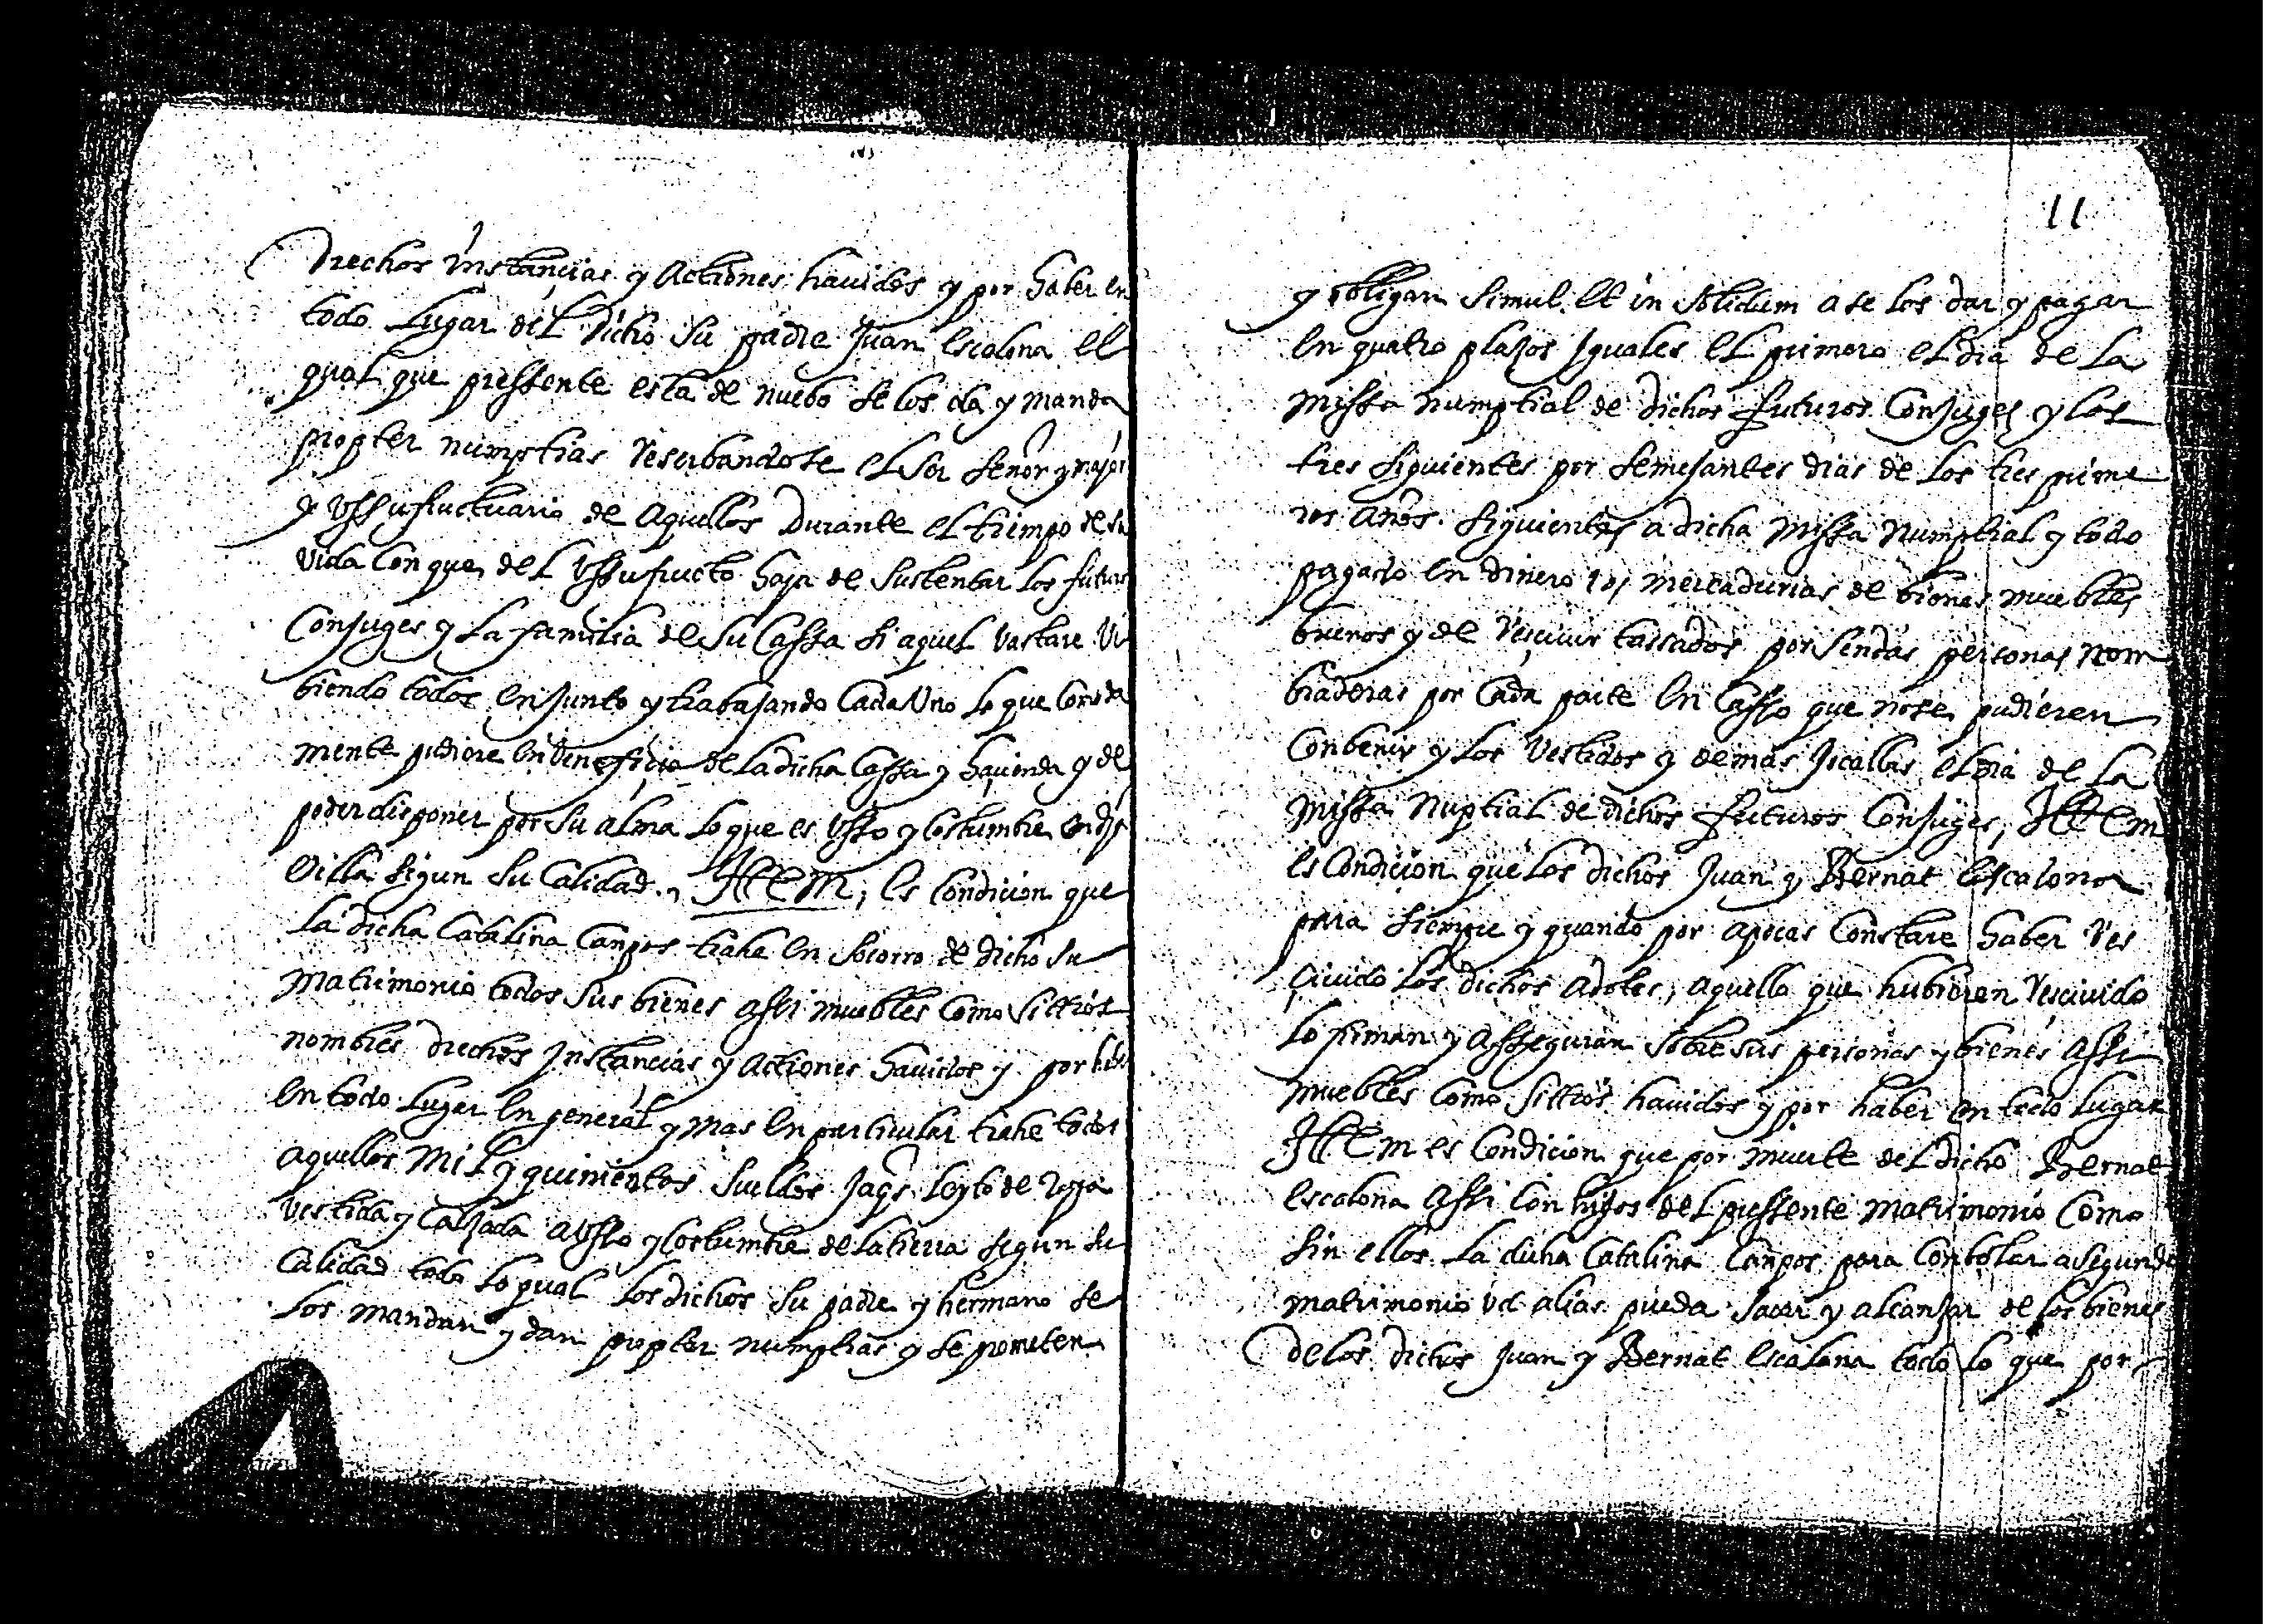 drechos instancias y Actiones hauidos y por haber en
todo Lugar deL dicho su padre Juan escalona el
qual que pressente está de nuebo se los da y manda
propter numptias reserbandose eL ser señor y major
y Vssufructuario de aquellos Durante eL tiempo de su
vida con que deL Vssufructo haja de sustentar los futuros
Conjuges y La familia de su Cassa si aqueL vastare Vi
biendo todos en junto y trabajando Cada Uno lo que comoda
mente pudiere en beneficio de La dicha Cassa y hauienda y de
poder disponer por su alma lo que es Vsso y costumbre en
Villa sigun su Calidad. Ittem, es Condicion que
La dicha Catalina Campos trahe en socorro de dicho su
Matrimonio todos sus bienes assi muebles Como sittios
nombres drechos Instancias y Actiones hauidos y por
en todo Lugar en general y mas en particular trahe todos
aquellos miL y quinientos sueldos Jaqs. leyto de ropa
vestida y Calzada a Vsso y Costumbre de La tierra segun su
Calidad todo lo quaL los dichos su padre y hermano se
Los mandan y dan propter numptias y se prometen
11
y obligan simul. et in solidum a se los dar y pagar
en quatro plazos Iguales eL primero eL dia de La
missa numptial de dichos futuros Conjuges y los
tres siguientes por semejantes dias de los tres prime
ros años siguientes a dicha missa numptial y todo
pagado en dinero mercadurias de bienes muebles
buenos y de resciuir tassados por sendas personas nom
braderas por Cada parte en Casso que no se pudieren
Conbenir y los Vestidos y demas Jocallas eL dia de La
missa NuptiaL de dichos futuros Conjuges, Ittem
es Condicion que Los dichos Juan y Bernat escalona
para siempre y quando por apocas Constare haber res
çiuido los dichos adotes, aquello que hubieren resciuido
lo firman y asseguran sobre sus personas y bienes assi
muebles como sittios hauidos y por haber en todo Lugar
Ittem es Condicion que por muerte deL dicho Bernat
escalona assi con hijos deL pressente matrimonio Como
sin ellos La dicha Catalina Campos para Conbolar a segundo
matrimonio vel alias pueda sacar y alcanzar de los bienes
de los dichos Juan y Bernat escalona todo lo que por